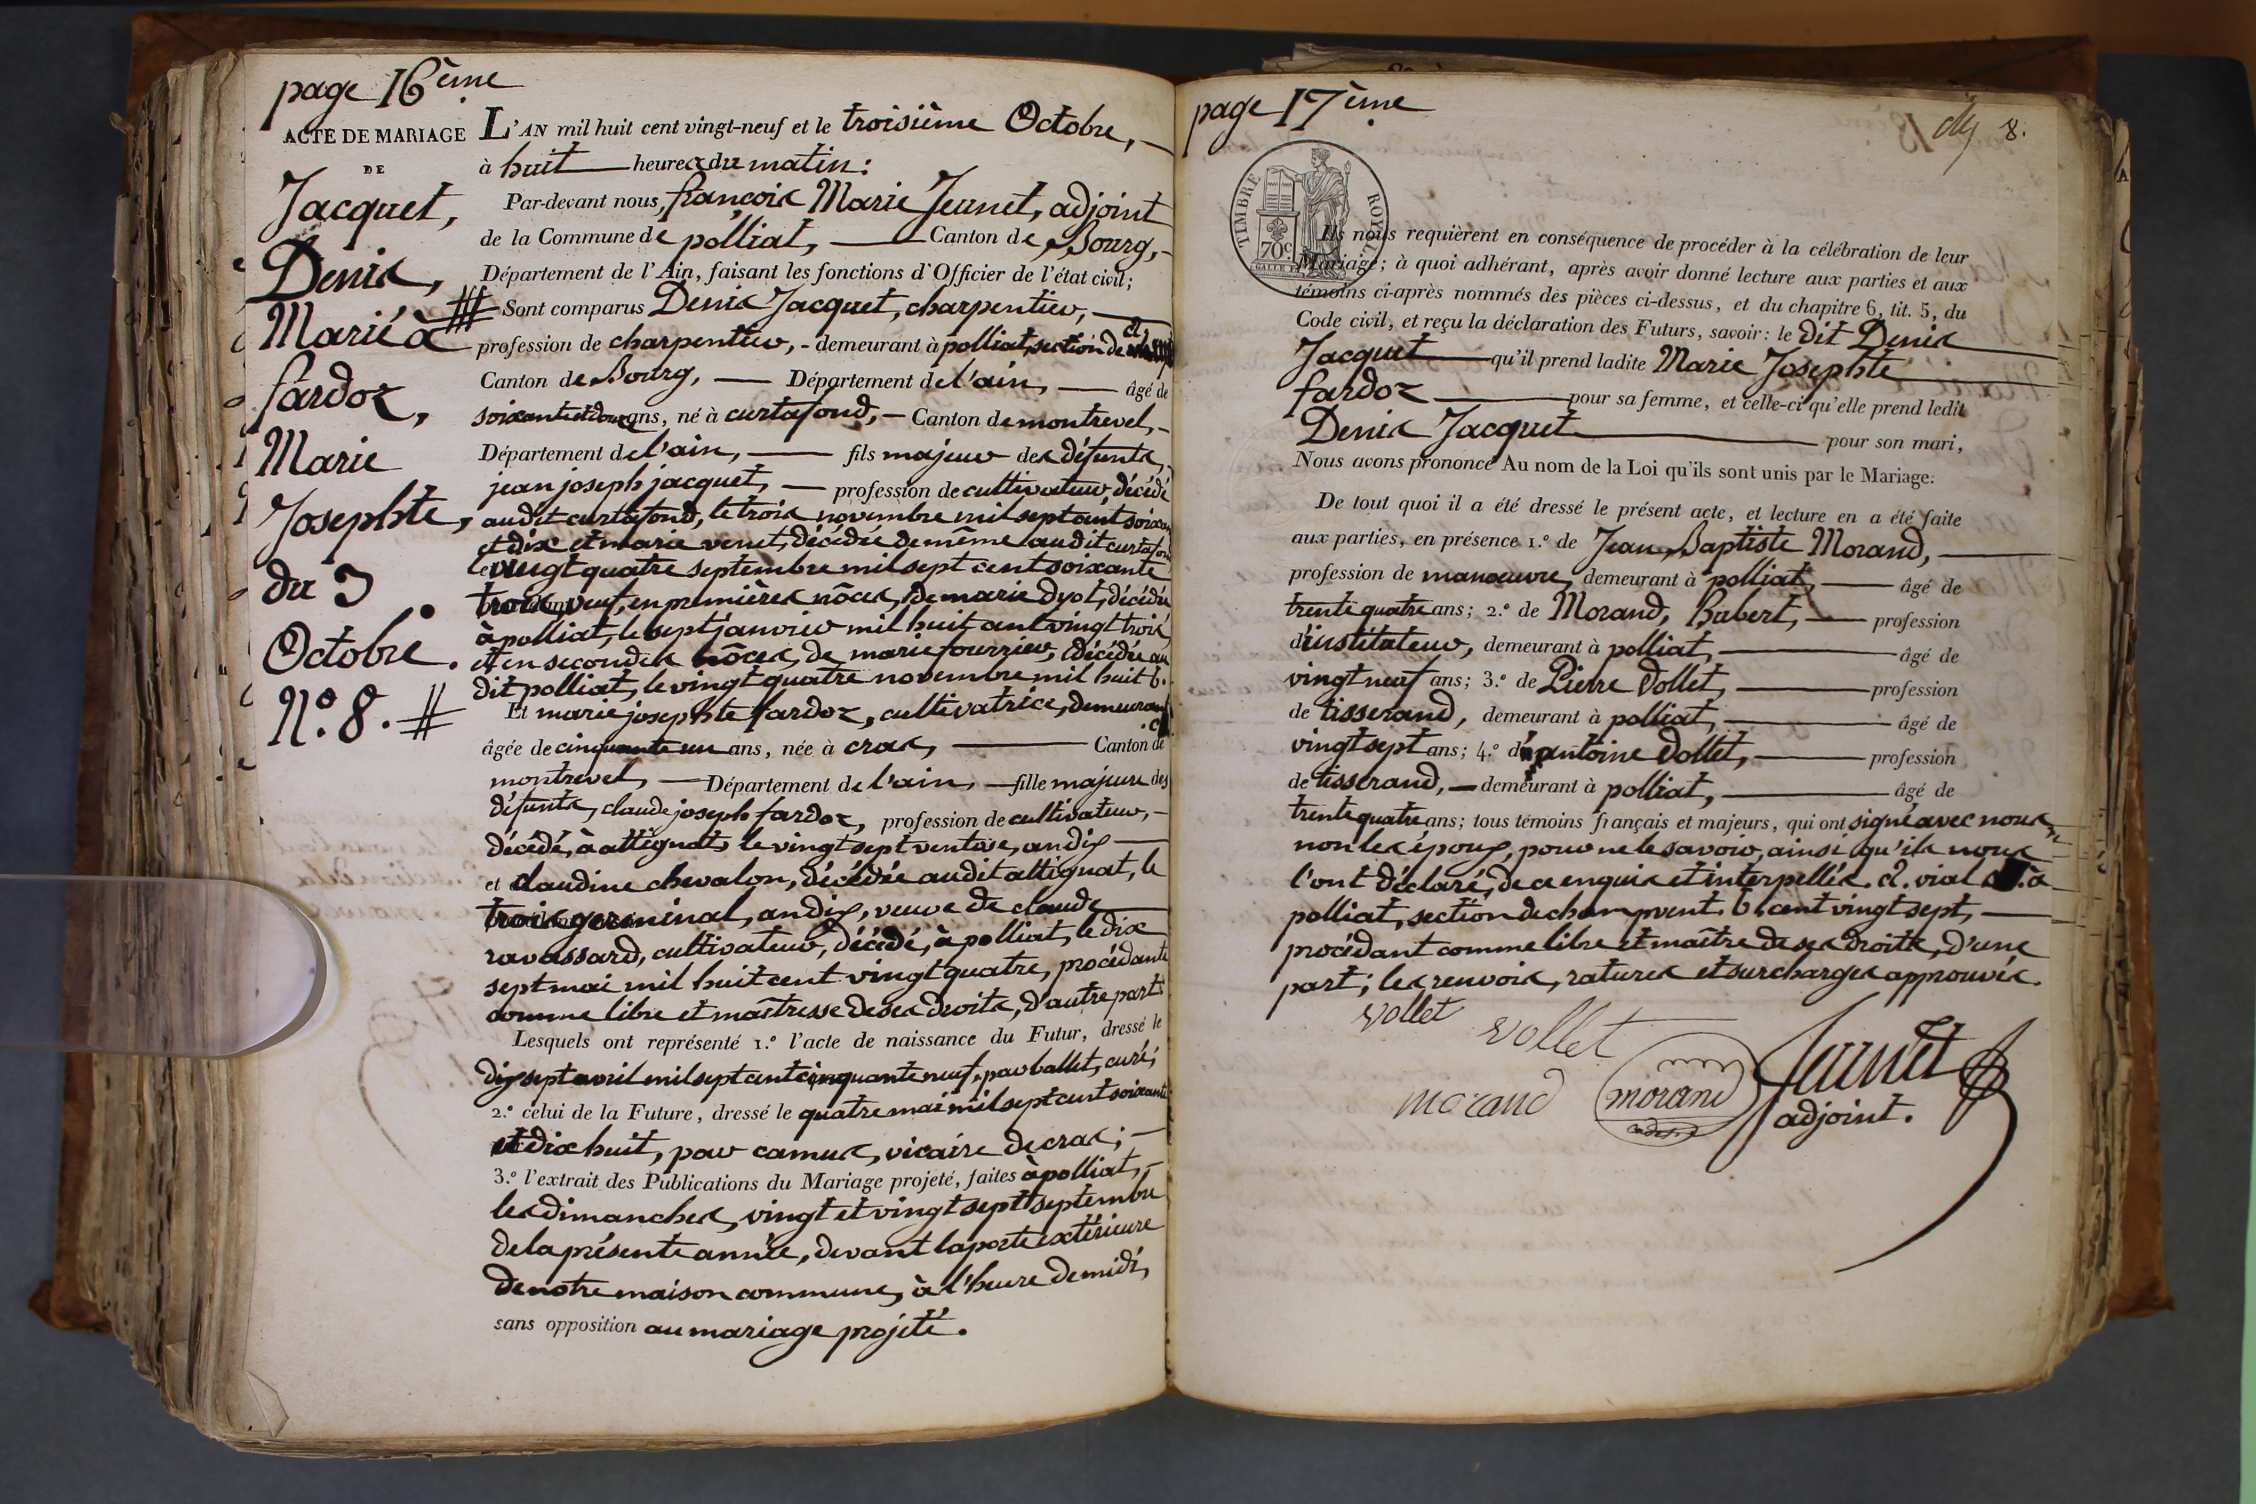 page 16ème
ACTE DE MARIAGE
DE
Jacquet,
Denis,
Marié à
fardoz,
Marie
Josephte,
du 3
Octobre.
N.º 8.
L'AN mil huit cent vingt-neuf et le troisième Octobre,
à huit heures du matin:
Par-devant nous, françois Marie Jeunet, adjoint
de la Commune de polliat, Canton de Bourg,
Département de l'Ain, faisant les fonctions d'Officier de l'état civil;
Sont comparus Denis Jacquet, charpentier,
profession de charpentier, demeurant à polliat, section de
Canton de Bourg, Département de l'ain, âgé de
soixante et douze ans, né à curtafond, Canton de montrevel,
Département de l'ain, fils majeur des défunts,
jean joseph jacquet, profession de cultivateur, décédé
audit curtafond, le trois novembre mil sept cent soixante
et dix et marie venet, décédée de même audit curtafond
le vingt quatre septembre mil sept cent soixante
trois, veuf, en premières nôces, de marie dyot, décédée
à polliat, le sept janvier mil huit cent vingt trois,
et en secondes nôces, de marie fourrier, décédée au
dit polliat, le vingt quatre novembre mil huit b.
Et marie josephte fardoz, cultivatrice, demeurant
âgée de cinquante un ans, née à cras, Canton de
montrevel, Département de l'ain, fille majeure des
défunts, claude joseph fardoz, profession de cultivateur,
décédé, à attignat, le vingt sept ventose, an dix
et claudine chevalon, décédée audit attignat, le
trois germinal, an dix, veuve de claude
ravassard, cultivateur, décédé, à polliat, le dix
sept mai mil huit cent vingt quatre, procédante
comme libre et maîtresse de ses droits, d'autre part:
Lesquels ont représenté 1.º l'acte de naissance du Futur, dressé le
dix sept avril mil sept cent cinquante neuf, par ballet, curé;
2.º celui de la Future, dressé le quatre mai mil sept cent soixante
et dix huit, par camus, vicaire de cras;
3.º l'extrait des Publications du Mariage projeté, faites à polliat,
les dimanches, vingt et vingt sept septembre
de la présente année, devant la porte extérieure
de notre maison commune, à l'heure de midi,
sans opposition au mariage projeté.
page 17ème
8.
TIMBRE ROYAL
70c.
Ils nous requièrent en conséquence de procéder à la célébration de leur
Mariage; à quoi adhérant, après avoir donné lecture aux parties et aux
témoins ci-après nommés des pièces ci-dessus, et du chapitre 6, tit. 5, du
Code civil, et reçu la déclaration des Futurs, savoir: le dit Denis
Jacquet qu'il prend ladite Marie Josephte
fardoz pour sa femme, et celle-ci qu'elle prend ledit
Denis Jacquet pour son mari,
Nous avons prononcé Au nom de la Loi qu'ils sont unis par le Mariage.
De tout quoi il a été dressé le présent acte, et lecture en a été faite
aux parties, en présence 1.º de Jean Baptiste Morand,
profession de manœuvre, demeurant à polliat, âgé de
trente quatre ans; 2.º de Morand, Habert, profession
d'instituteur, demeurant à polliat, âgé de
vingt neuf ans; 3.º de Pierre Vollet, profession
de tisserand, demeurant à polliat, âgé de
vingt sept ans; 4.º d'antoine Vollet, profession
de tisserand, demeurant à polliat, âgé de
trente quatre ans; tous témoins français et majeurs, qui ont signé avec nous,
non les époux, pour ne le savoir, ainsi qu'ils nous
l'ont déclaré, de ce enquis et interpellés. a. vial à
polliat, section de champvent. b. cent vingt sept,
procédant comme libre et maître de ses droits, d'une
part; les renvois, ratures et surcharges approuvés.
vollet
vollet
morand
morand
Jeunet
adjoint.